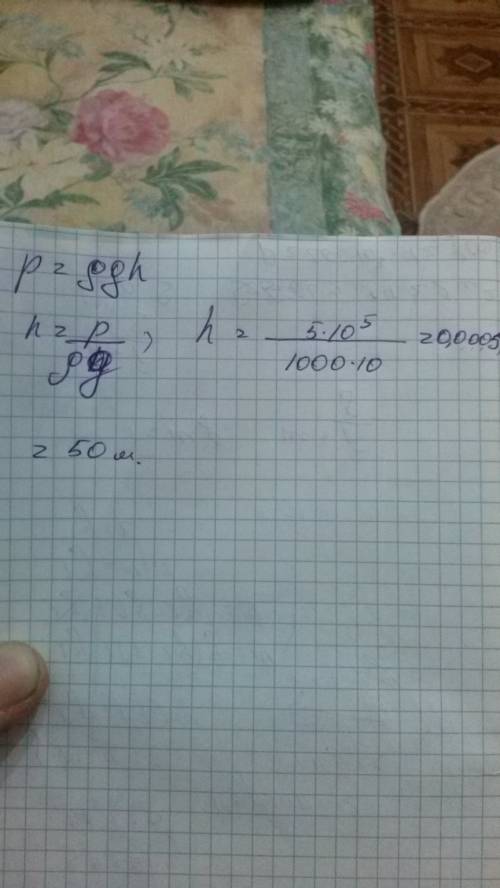 p = ρgh
h = p/ρg ; h = 5·10⁵/1000·10 = 0,0005
= 50 м.